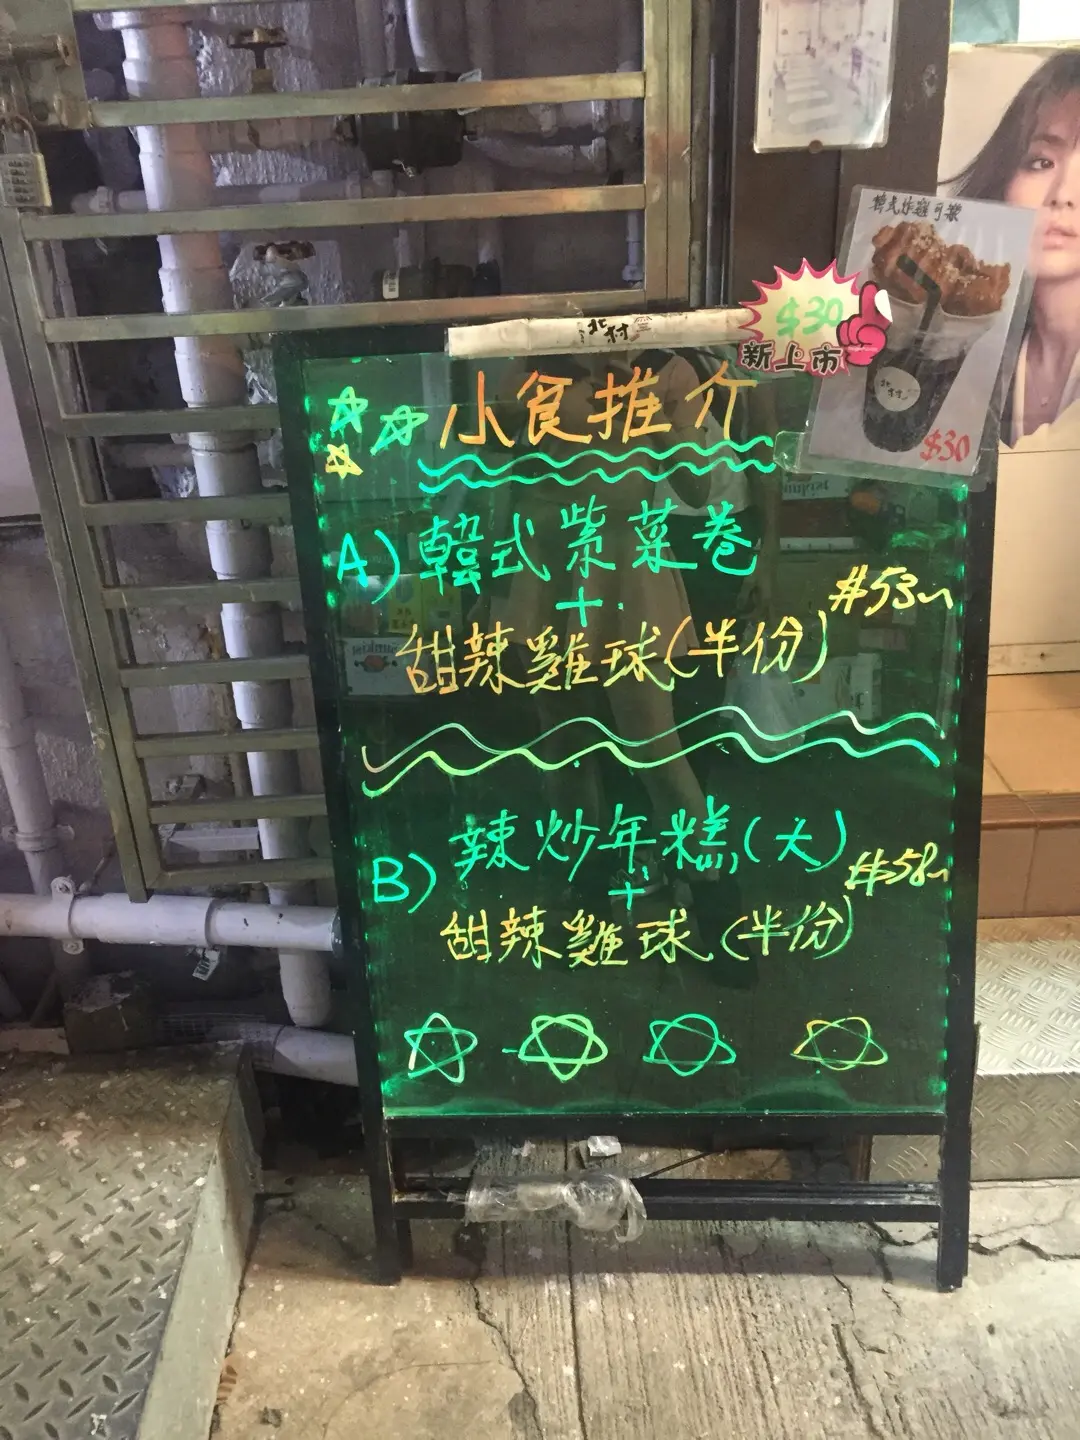 韓式炸雞可樂
$30
新上市
北村
$30
小食推介
A) 韓式紫菜卷
+
甜辣雞球(半份)
#53
B) 辣炒年糕(大)
+
甜辣雞球(半份)
$58